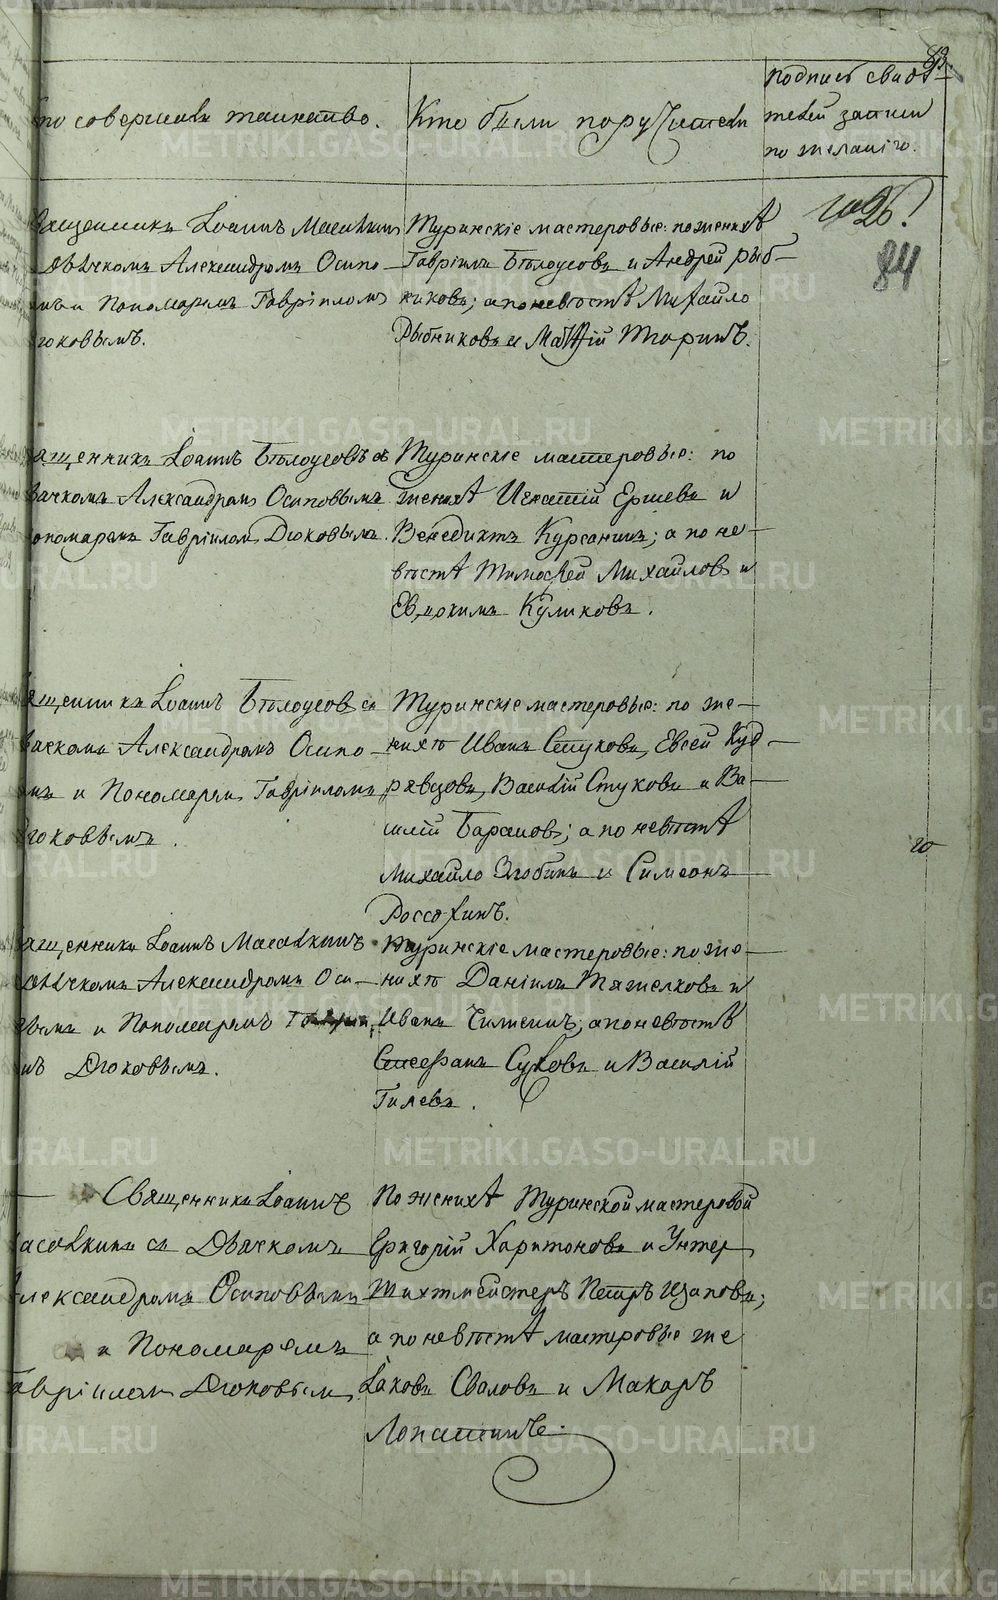 Кто совершалъ таинство.
Кто были поручители
подпись свидѣ-
телей записи
по желанію.
84
Священникъ Іоаннъ Масалкинъ
дьячкомъ Александромъ Осипо-
вымъ и Пономаремъ Гавріиломъ
Дюковымъ.
Туринскіе мастеровые: по женихѣ
Гавріилъ Бѣлоусовъ и Андрей Рыб-
никовъ; а по невѣстѣ Михайло
Рыбниковъ и Матѳій
Священникъ Іоаннъ Бѣлоусовъ съ
дьячкомъ Александромъ Осиповымъ
Пономаремъ Гавріиломъ Дюковымъ.
Туринскіе мастеровые: по
женихѣ Игнатій Ершевъ и
Венедиктъ Курсанинъ; а по не-
вѣстѣ Тимоѳей Михайловъ и
Евдокимъ Куликовъ.
Священникъ Іоаннъ Бѣлоусовъ съ
дьячкомъ Александромъ Осипо-
вымъ и Пономаремъ Гавріиломъ
Дюковымъ.
Туринскіе мастеровые: по же-
нихѣ Иванъ Стуковъ, Евсей Куд-
рявцовъ, Василій Стуковъ и Ва-
силій Барановъ; а по невѣстѣ
Михайло Злобинъ и Симеонъ
Россохинъ.
Священникъ Іоаннъ Масалкинъ
дьячкомъ Александромъ Оси-
повымъ и Пономаремъ Гаврiи
ломъ Дюковымъ.
Туринскіе мастеровые: по же-
нихѣ Даніилъ Тяжелковъ и
Иванъ Чижевъ; а по невѣстѣ
Сукховъ и Василій
Гилевъ.
Священникъ Іоаннъ
Масалкинъ съ Дьячкомъ
Александромъ Осиповымъ
и Пономаремъ
Гавріиломъ Дюковымъ
По женихѣ Туринской мастеровой
Григорій Харитоновъ и Унтер
Шихтмейстеръ Петръ
а по невѣстѣ мастеровые же
Іаковъ Сваловъ и Макаръ
Лопатинъ.
METRIKI.GASO-URAL.RU